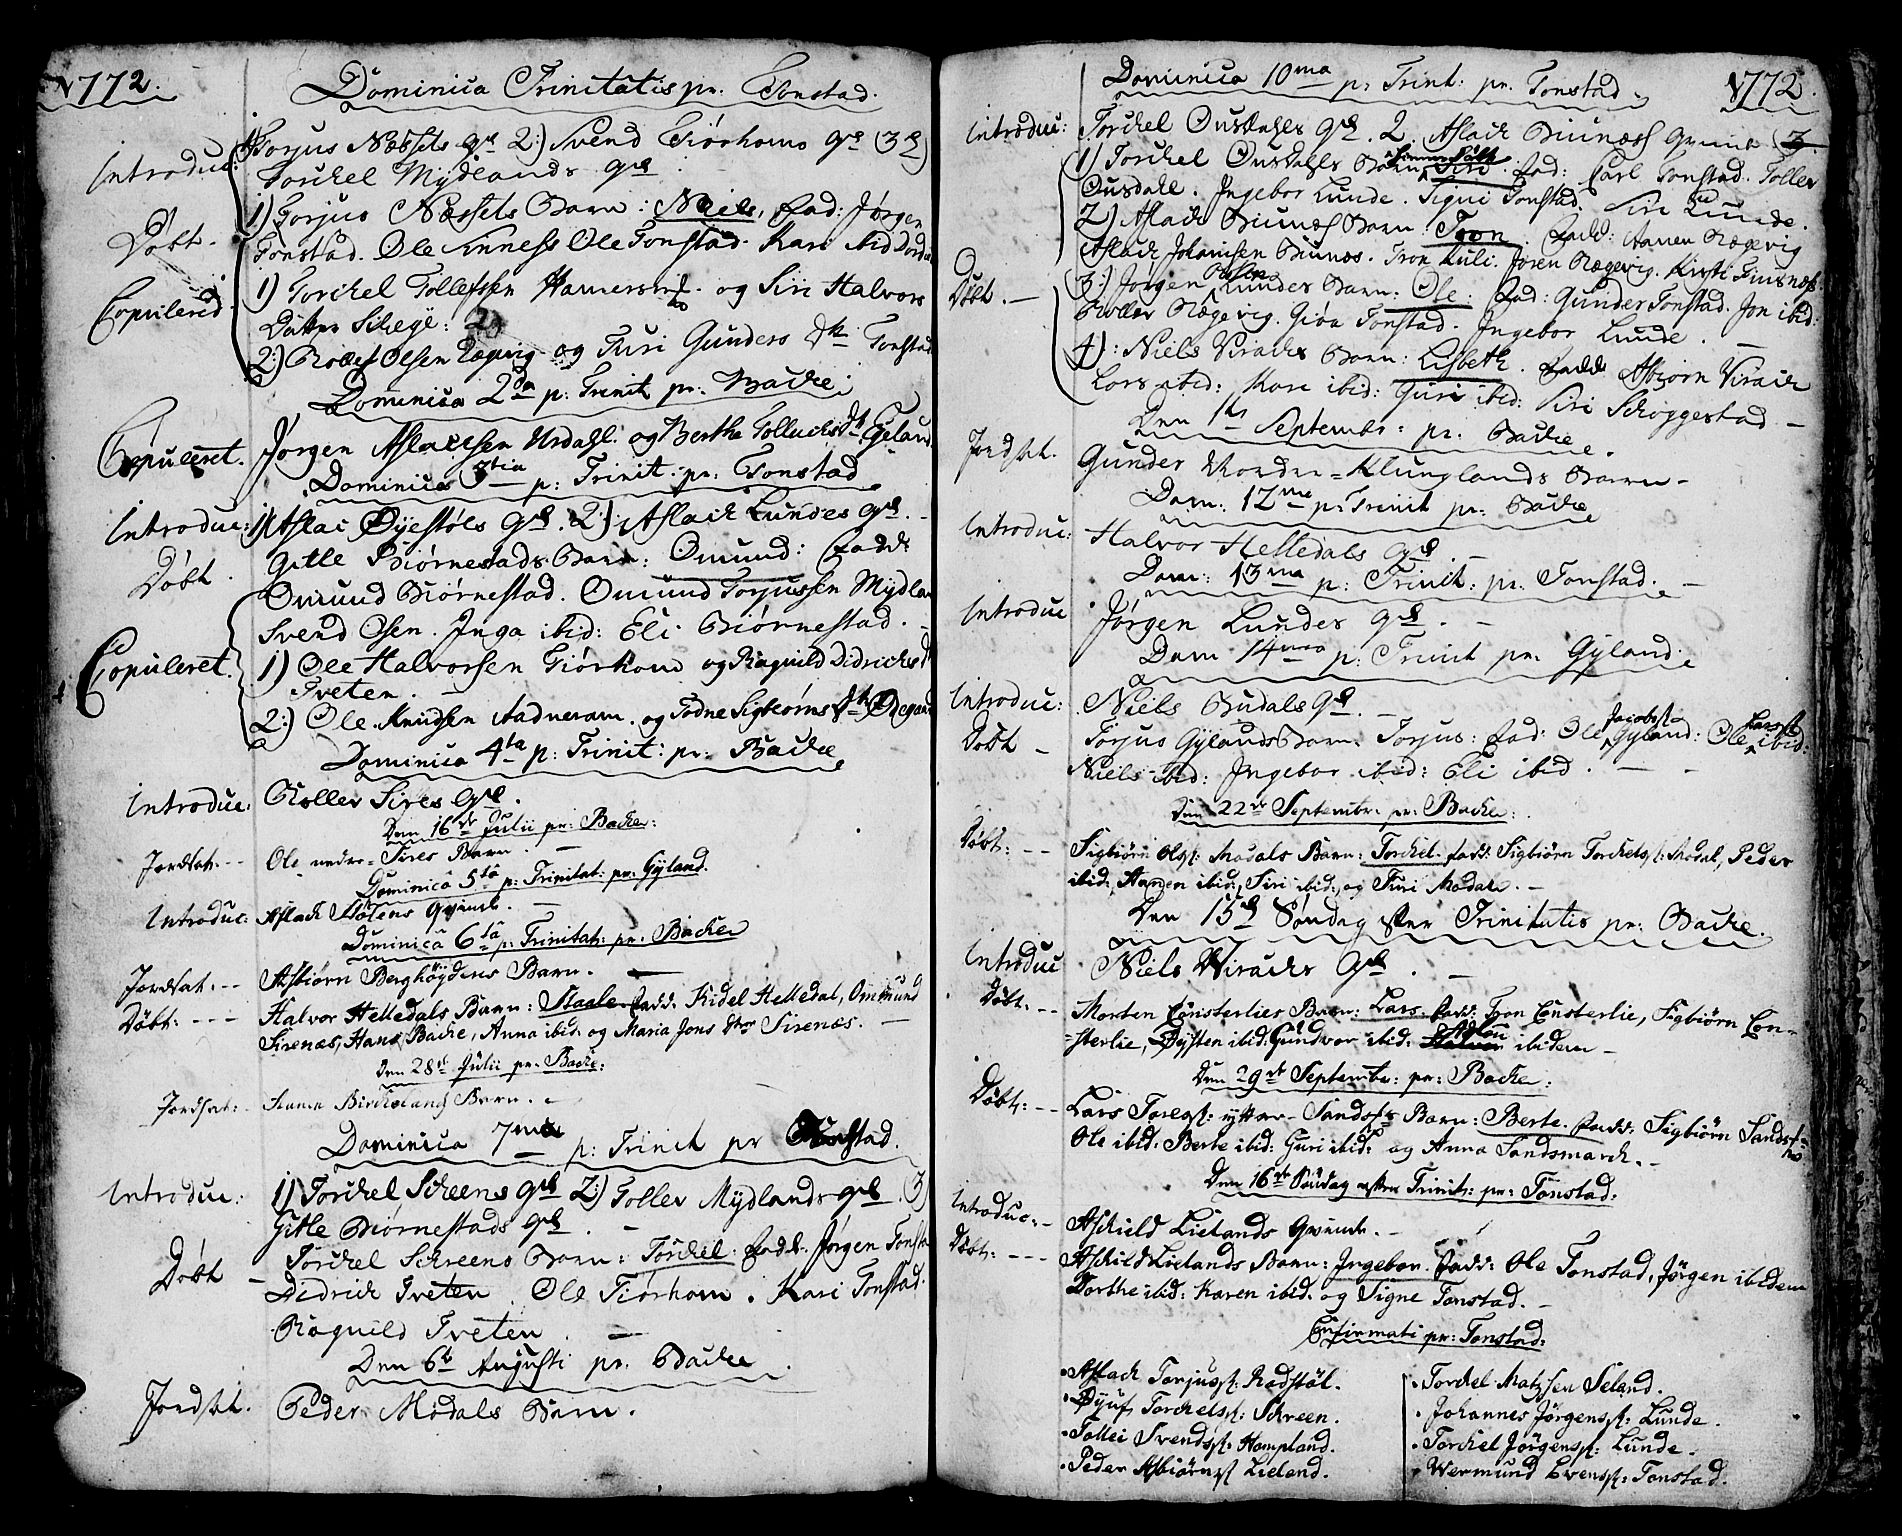 1772.
Dominica Trinitatis pr. Tonstad.
Introduc: 1) Torjus Næssets qvi 2:) Svend Fiørhoms qvi (3
Torchel Mydlands qvi
Døbt. 1) Torjus Næssets Barn: Niels, Fad: Jørgen
Tonstad. Ole Sinnes Ole Tonstad. Kari
Copulered. 1) Torchel Tollefsen og Siri Halvors
Datter Schreye:
2:) Olsen og Turi Gunders Dtr Tonstad
Dominica 2da p: Trinit pr. Backe
Copuleret. Jørgen Aslacksen Urdahl. og Berthe Tollachs Dt Egeland
Dominica 3tia p: Trinit: pr: Tonstad
Introduc: 1) Aslac Øyestøls qvi. 2:) Aslach Lundes qvi.
Døbt. Gitle Biørnestads Barn: Omund: Fadd:
Omund Biørnestad. Omund Torjussen Mydland
Svend Osen. Inga ibid: Eli Biørnestad.
Copuleret. 1) Ole Halvorsen Fiørhom og Ragnild Didrichs
Tveten.
2:) Ole Knudsen Aadneram. og Todne Sigbiørns Dtr Ødegaard
Dominica 4ta p: Trinit: pr: Backe
Introduc: Roller Sires qvi.
Den 16de Julii pr: Backe:
Jordsat:-- Ole nedre=Sires Barn.
Dominica 5ta p: Trinitat: pr: Gyland.
Introduc: Aslach Stølens qvinde.
Dominica 6ta p: Trinitat: pr. Backe
Jordsat:-- Asbiørn Berghøydens Barn.
Døbt:--- Halvor Helledals Barn: Staale Fadd: Kidel Helledal, Ommund
Sirenæs, Hans Backe, Anna ibid. og Maria Jons dtr Sirenæs.
Den 28de Julii pr. Backe:
Jordsat:- Aanen Birchelands Barn.
Dominica 7ma p: Trinit pr Tonstad.
Introduc: 1) Torchel Schreens qvi 2:) Tollev Mydlands qvi. (3)
Gitle Biørnestads qvi.
Døbt Torchel Schreens Barn: Torchel. Fadd. Jørgen Tonstad
Didrich Tveten. Ole Fiørhom. Kari Tonstad.
Ragnild Tveten.
Den 6te Augusti pr. Backe
Jordsat. Peder Modals Barn.
Dominica 10ma p: Trint: pr. Tonstad 1772.
Introduc: Torchel Ousdahls qvi. 2. Aslach Biunæs qvinde
1) Torchel Ousdahls Barn Siri. Fad: Carl Tonstad. Tollev
Ousdahl. Ingebor Lunde. Signi Tonstad. Siri Lunde.
2) Aslach Biunæs Barn Tron. Fadd: Aanen Rægevig
Aslach Johannsen Biunæs. Tron Kuli. Jøren Rægevig. Kirsti Finsnæs.
Døbt.- 3:) Jørgen Olsen Lundes Barn: Ole. Fad: Gunder Tonstad. Jon ibid:
Roller Rægevig. Giøa Tonstad. Ingebor Lunde.
4): Niels Virachs Barn: Lisbeth. Fadd Asbiørn Virach
Lars ibid: Kari ibid: Guri ibid: Siri Schøggestad
Den 1ste Septembr: pr. Backe
Jordsat. Gunder Nordre=Klunglands Barn-
Dom: 12me p: Trinit pr: Backe
Introduc: Halvor Helledals qvi.
Dom: 13ma p: Trinit: pr: Tonstad.
Introduc Jørgen Lundes qvi.
Dom 14ma p: Trinit pr: Gyland:
Introduc: Niels Budals qvi.
Døbt - Torjus Gylands Barn. Torjus: Fad: Ole Jacobss Gyland: Ole Larss ibid:
Niels ibid: Ingebor ibid: Eli ibid.
Den 22de Septembr: pr: Backe:
Døbt:-- Sigbiørn Olss: Modals Barn: Torchel. Fadd: Sigbiørn Torchelss: Modal, Peder
ibid, Aanen ibid, Siri ibid, og Turi Modal.
Den 15de Søndag efter Trinitatis pr: Backe.
Introduc Niels Virachs qvi.
Døbt:-- Morten Consterlies Barn: Lars. Fadd: Tron Consterlie, Sigbiørn Con-
=sterlie, Øysten ibid: Gundvor ibid: ibidem
Den 29de Septembr: pr: Backe:
Døbt:-- Lars Toress: yttre Sands Barn: Berte. Fadd: Sigbiørn Sands
Ole ibid. Berte ibid: Guri ibid: og Anna Sandsmarch.
Den 16de Søndag efter Trinit: pr: Tonstad:
Introduc:- Aschield Lielands qvinde.
Døbt:--- Aschield Lielands Barn: Ingebor. Fadd: Ole Tonstad, Jørgen ibidem
Dorthe ibid: Karen ibid. og Signe Tonstad.
Confirmati pr: Tonstad:
Aslach Torjuss: Radstøl.
Øyuf Torchelss: Schreen.
Tollei Svendss: Hompland.
Peder Asbiørnss Lieland.
Torchel Matzsen Seland.
Johannes Jørgenss: Lunde.
Torchel Jørgenss: Lunde.
Wermund Evenss: Tonstad.